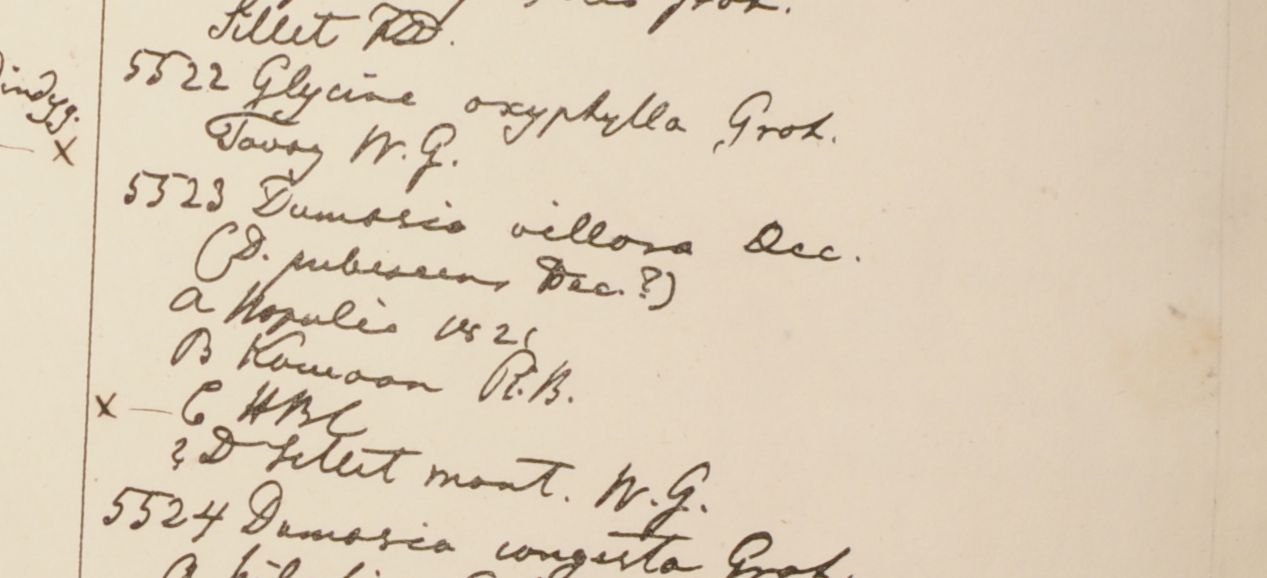 Sillet FD.
5522 Glycine oxyphylla Grah.
Tavoy W.G.
5523 Dumasia villosa Dec.
(D. pubescens Dec.?)
a Napalia 1821
B Kamaon R.B.
x — C HBC
? D Sillet mont. W.G.
5524 Dumasia congesta Grah.